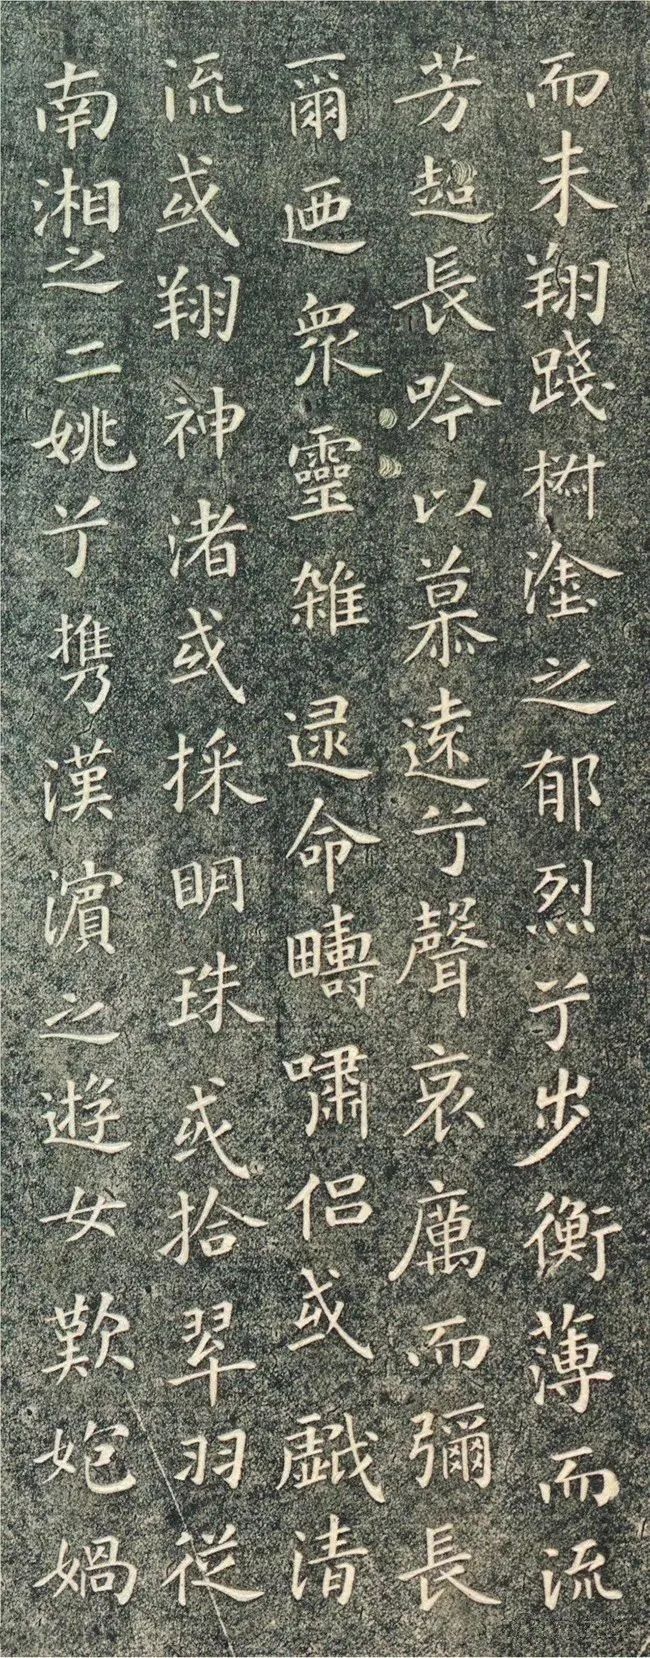 而未翔踐椒塗之郁烈兮步衡薄而流
芳超長吟以慕遠兮聲哀厲而彌長
爾迺眾靈雜遝命疇嘯侶或戲清
流或翔神渚或採明珠或拾翠羽從
南湘之二姚兮攜漢濱之遊女歎匏媧